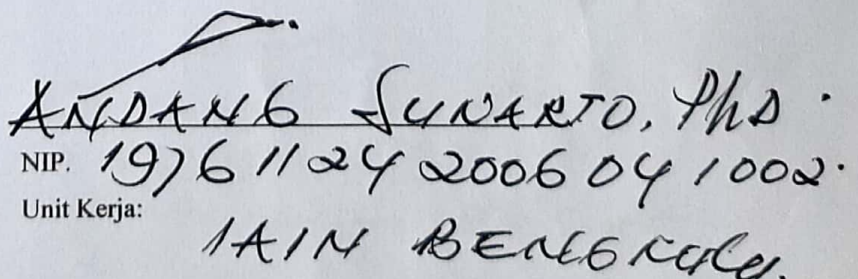 ANDANG SUNARTO, PhD.
NIP. 19761124 200604 1002.
Unit Kerja:
IAIN BENGKULU.